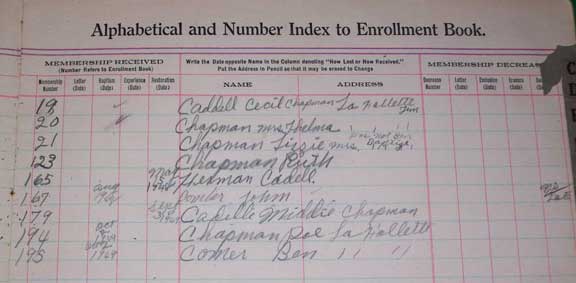 Alphabetical and Number Index to Enrollment Book.
MEMBERSHIP RECEIVED
(Number Refers to Enrollment Book)
Write the Date opposite Name in the Column denoting "How Lost or How Received."
Put the Address in Pencil so that it may be erased to Change
MEMBERSHIP DECREAS
Membership Number Letter (Date) Baptism (Date) Experience (Date) Restoration (Date) NAME ADDRESS Decrease Number Letter (Date) Exclusion (Date) Erasure (Date) Death (Date)
19 Caddell Cecil Chapman La Follette Tenn
20 Chapman Mrs Thelma " "
21 Chapman Lizzie Mrs.
123 Chapman Ruth
165 May Herman Cadell
167 Aug Comer John
179 Cadelle Middie Chapman
194 Oct 1949 Chapman Doe La Follette
195 1949 Comer Ben " "